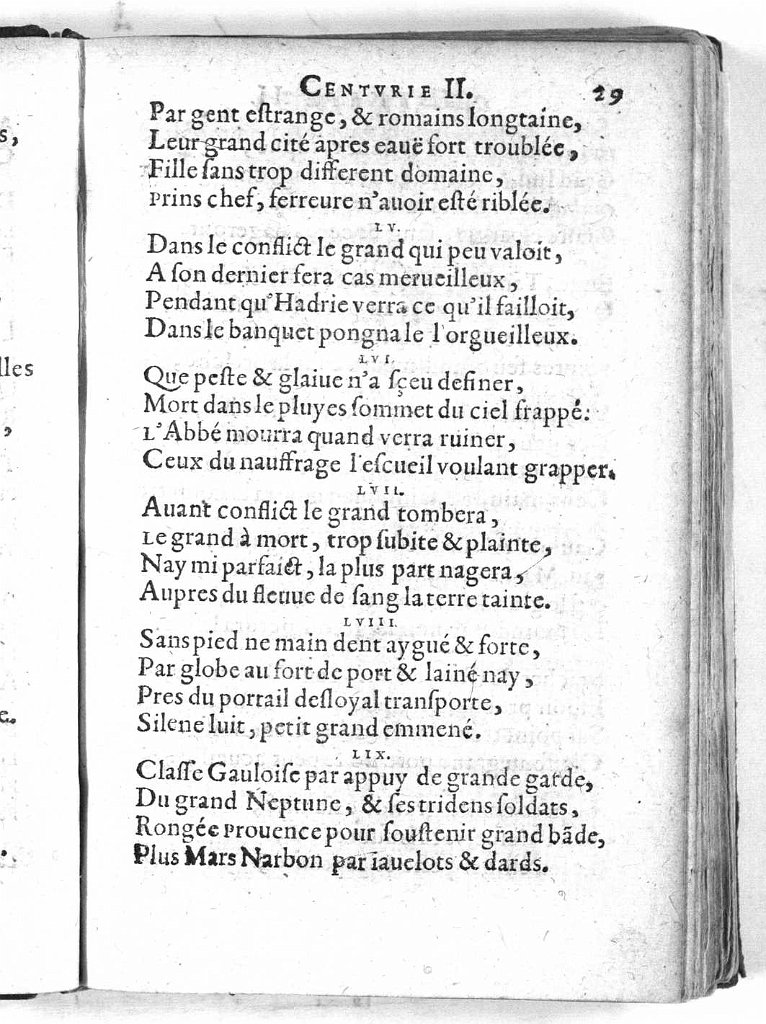 s,
lles
,
e.
.
CENTVRIE II. 29
Par gent eſtrange, & romains longtaine,
Leur grand cité apres eauë fort troublée,
Fille ſans trop different domaine,
Prins chef, ferreure n'auoir eſté riblée.
LV.
Dans le conflict le grand qui peu valoit,
A ſon dernier fera cas merueilleux,
Pendant qu'Hadrie verra ce qu'il failloit,
Dans le banquet pongnale l'orgueilleux.
LVI.
Que peſte & glaiue n'a ſçeu definer,
Mort dans le pluyes ſommet du ciel frappé:
L'Abbé mourra quand verra ruiner,
Ceux du nauffrage l'eſcueil voulant grapper.
LVII.
Auant conflict le grand tombera,
Le grand à mort, trop ſubite & plainte,
Nay mi parfaict, la plus part nagera,
Aupres du fleuue de ſang la terre tainte.
LVIII.
Sans pied ne main dent aygué & forte,
Par globe au fort de port & lainé nay,
Pres du portail desloyal tranſporte,
Silene luit, petit grand emmené.
LIX.
Claſſe Gauloiſe par appuy de grande garde,
Du grand Neptune, & ſes tridens ſoldats,
Rongée Prouence pour ſouſtenir grand bãde,
Plus Mars Narbon par iauelots & dards.